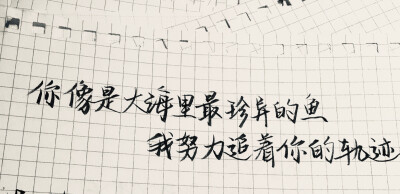 你像是大海里最珍异的鱼
我努力追着你的轨迹